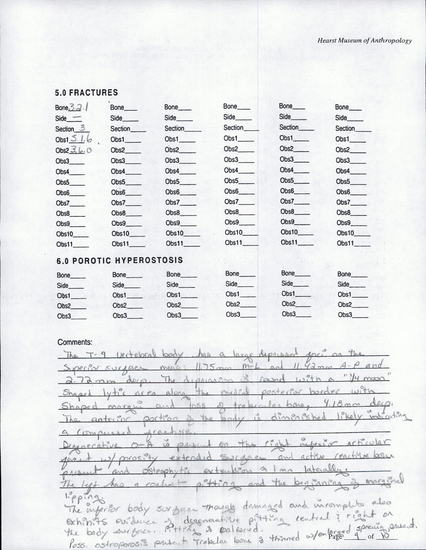 Hearst Museum of Anthropology
5.0 FRACTURES
Bone 321 Bone Bone Bone Bone Bone
Side — Side Side Side Side Side
Section 3 Section Section Section Section Section
Obs1 516 Obs1 Obs1 Obs1 Obs1 Obs1
Obs2 360 Obs2 Obs2 Obs2 Obs2 Obs2
Obs3 Obs3 Obs3 Obs3 Obs3 Obs3
Obs4 Obs4 Obs4 Obs4 Obs4 Obs4
Obs5 Obs5 Obs5 Obs5 Obs5 Obs5
Obs6 Obs6 Obs6 Obs6 Obs6 Obs6
Obs7 Obs7 Obs7 Obs7 Obs7 Obs7
Obs8 Obs8 Obs8 Obs8 Obs8 Obs8
Obs9 Obs9 Obs9 Obs9 Obs9 Obs9
Obs10 Obs10 Obs10 Obs10 Obs10 Obs10
Obs11 Obs11 Obs11 Obs11 Obs11 Obs11
6.0 POROTIC HYPEROSTOSIS
Bone Bone Bone Bone Bone Bone
Side Side Side Side Side Side
Obs1 Obs1 Obs1 Obs1 Obs1 Obs1
Obs2 Obs2 Obs2 Obs2 Obs2 Obs2
Obs3 Obs3 Obs3 Obs3 Obs3 Obs3
Comments:
The T-9 vertebral body has a large depressed foci on the
superior surface meas: 11.75mm M-L and 11.42mm A-P and
2.72mm deep. The depression is round with a "1/4 moon"
shaped lytic area along the medial posterior border with
shaped margins and loss of trabecular bone, 4.18mm deep.
The anterior portion of the body is diminished likely indicating
a compressed fracture.
Degenerative O-A is present on the right inferior articular
facet w/ porosity extended surface and active reactive bone
present and osteophytic extensions 2.1mm laterally.
The left has a pitting and the beginning of marginal
lipping.
The inferior body surface though damaged and incomplete also
exhibits evidence of degenerative pitting central & right on
the body surface. Pitting is
Poss. osteoporosis present. Trabecular bone is thinned w/ enlarged spacing present.
Page 9 of 10